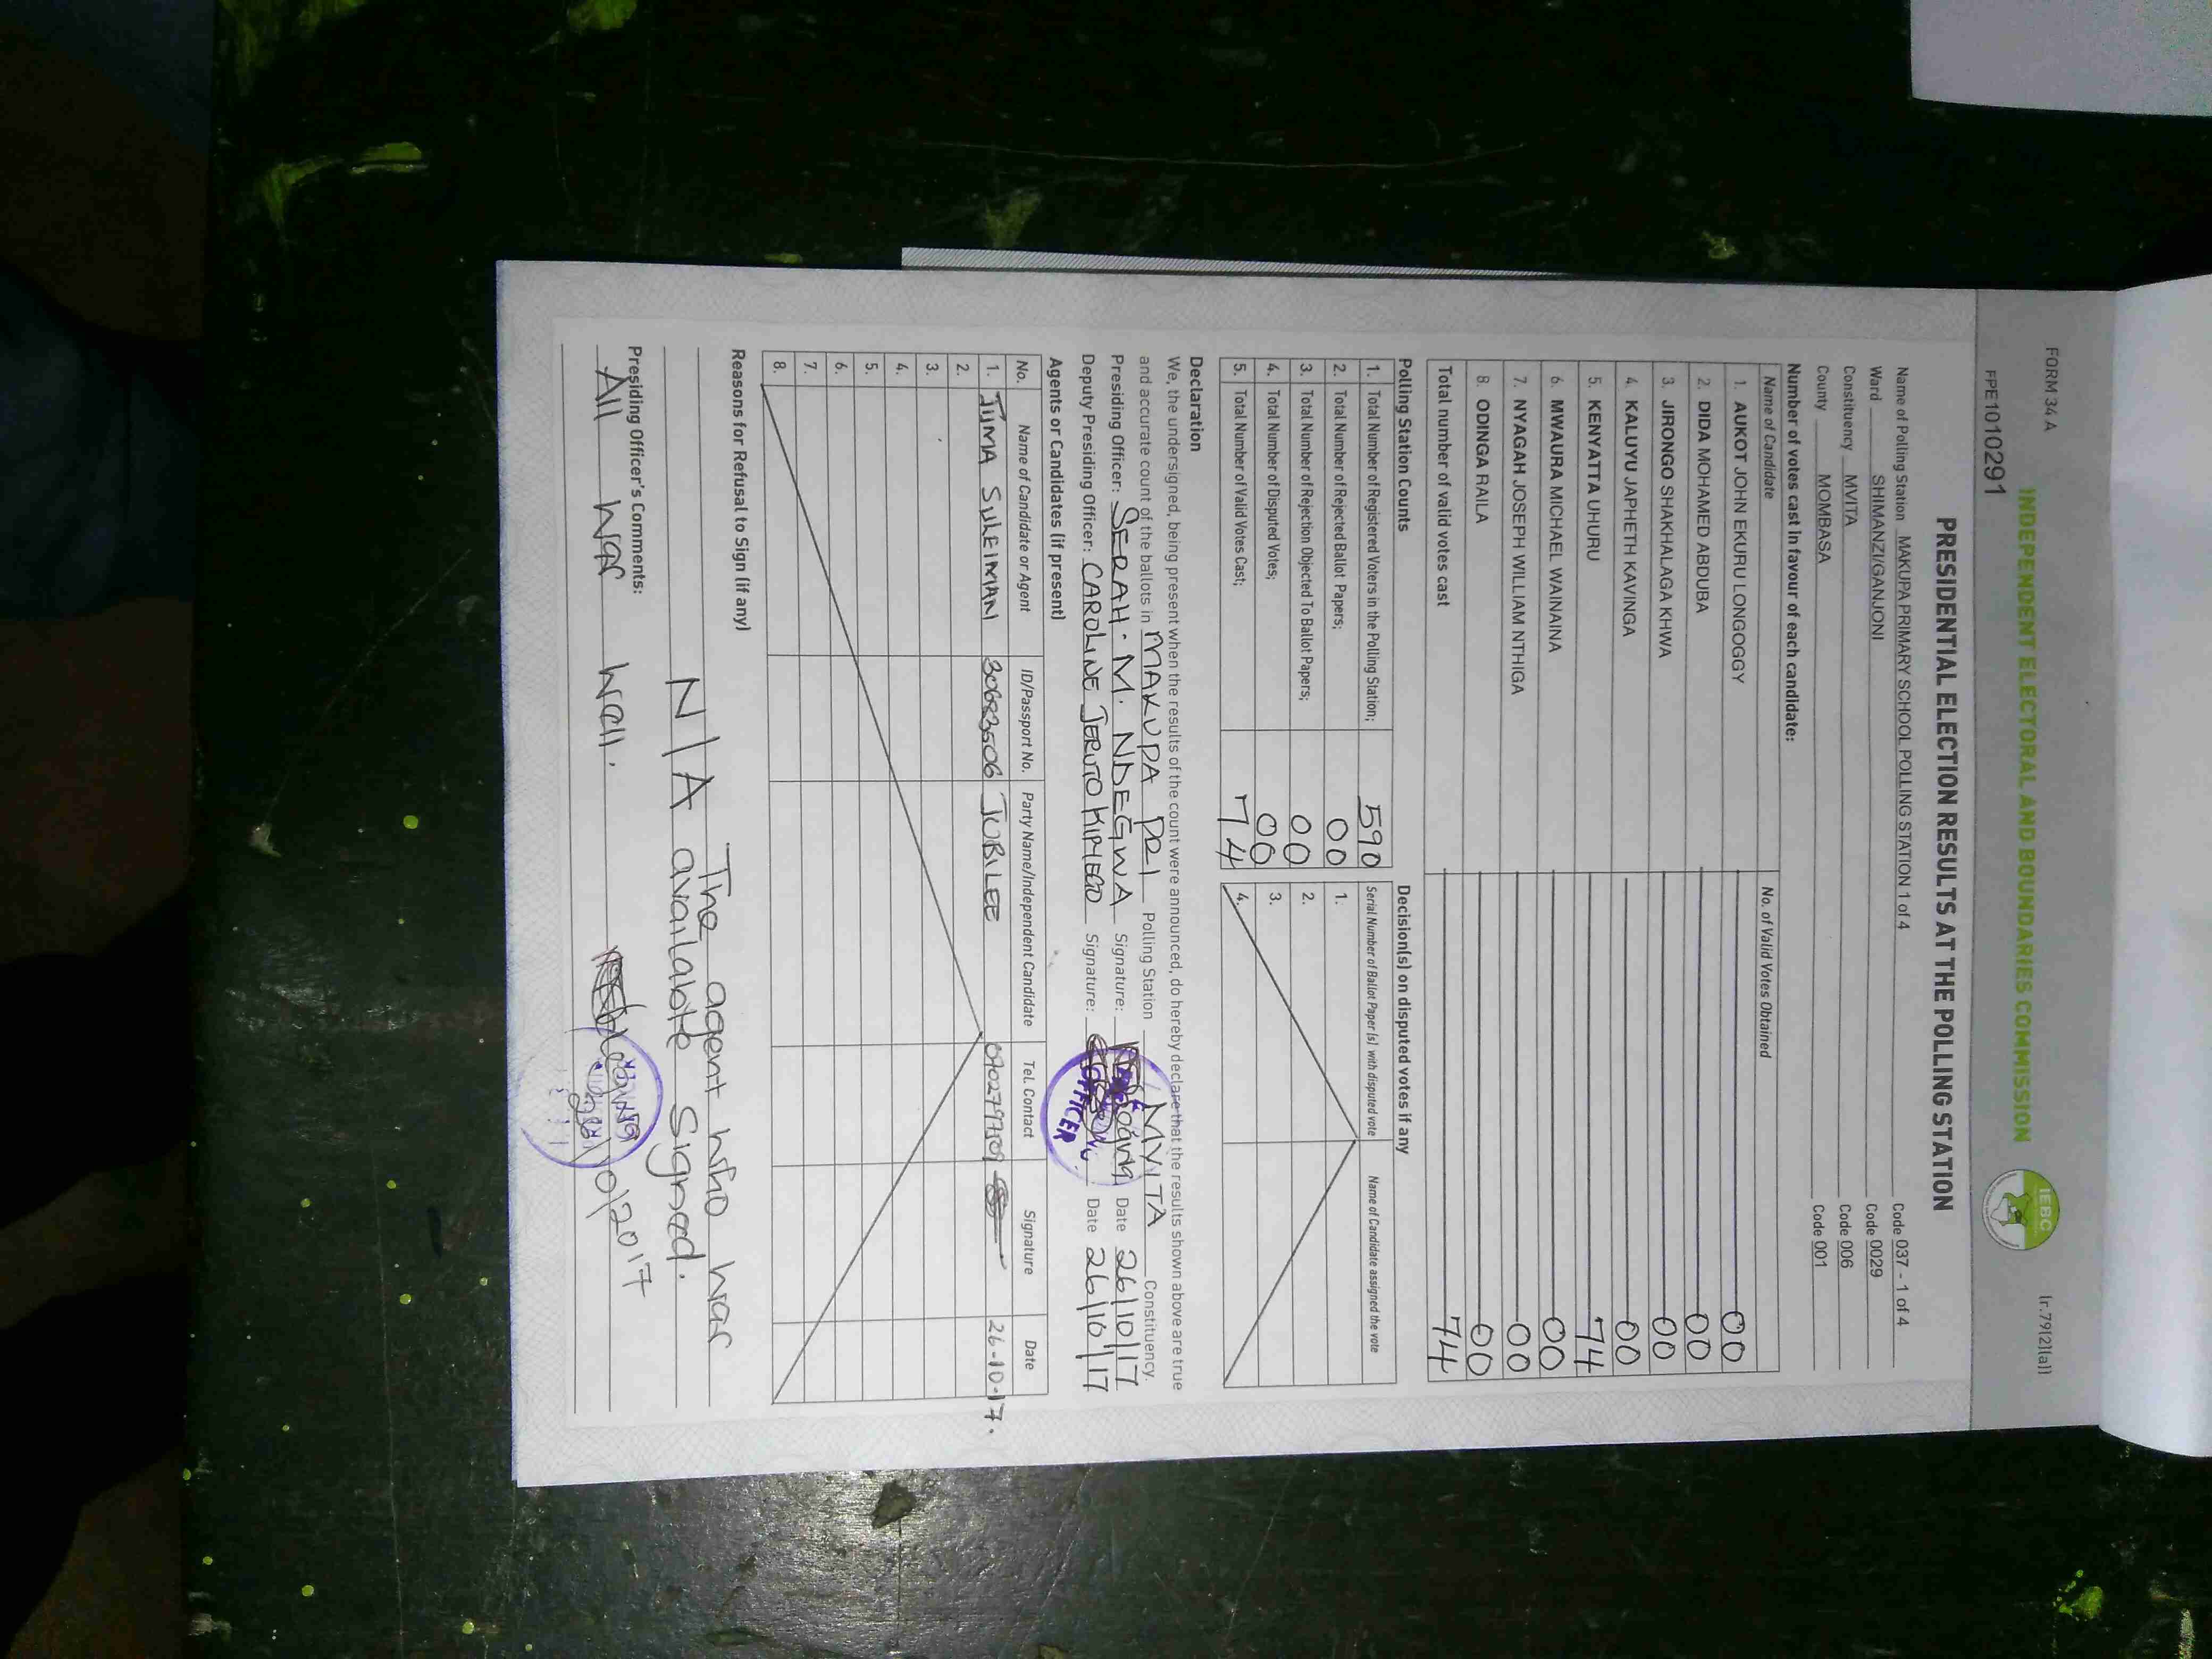 FORM 34 A
Ir.79(2)(a)
INDEPENDENT ELECTORAL AND BOUNDARIES COMMISSION
IEBC
FPE1010291
PRESIDENTIAL ELECTION RESULTS AT THE POLLING STATION
Name of Polling Station MAKUPA PRIMARY SCHOOL POLLING STATION 1 of 4 Code 037 - 1 of 4
Ward SHIMANZI/GANJONI Code 0029
Constituency MVITA Code 006
County MOMBASA Code 001
Number of votes cast in favour of each candidate:
Name of Candidate No. of Valid Votes Obtained
1. AUKOT JOHN EKURU LONGOGGY 00
2. DIDA MOHAMED ABDUBA 00
3. JIRONGO SHAKHALAGA KHWA 00
4. KALUYU JAPHETH KAVINGA 00
5. KENYATTA UHURU 74
6. MWAURA MICHAEL WAINAINA 00
7. NYAGAH JOSEPH WILLIAM NTHIGA 00
8. ODINGA RAILA 00
Total number of valid votes cast 74
Polling Station Counts Decision(s) on disputed votes if any
1. Total Number of Registered Voters in the Polling Station; 590 Serial Number of Ballot Paper (s) with disputed vote Name of Candidate assigned the vote
2. Total Number of Rejected Ballot Papers; 00 1.
3. Total Number of Rejection Objected To Ballot Papers; 00 2.
4. Total Number of Disputed Votes; 00 3.
5. Total Number of Valid Votes Cast; 74 4.
Declaration
We, the undersigned, being present when the results of the count were announced, do hereby declare that the results shown above are true
and accurate count of the ballots in MAKUPA PRI Polling Station MVITA Constituency.
Presiding Officer: SERAH. M. NDEGWA Signature: Date 26/10/17
Deputy Presiding Officer: CAROLINE JERUTO KIPIEGO Signature: Date 26/10/17
OFFICER
Agents or Candidates (if present)
No. Name of Candidate or Agent ID/Passport No. Party Name/Independent Candidate Tel. Contact Signature Date
1. JUMA SULEIMAN 30683506 JUBILEE 0702797709 26-10-17.
2.
3.
4.
5.
6.
7.
8.
Reasons for Refusal to Sign (if any)
The agent who was
N/A available signed.
Presiding Officer's Comments:
All was well. 26/10/2017